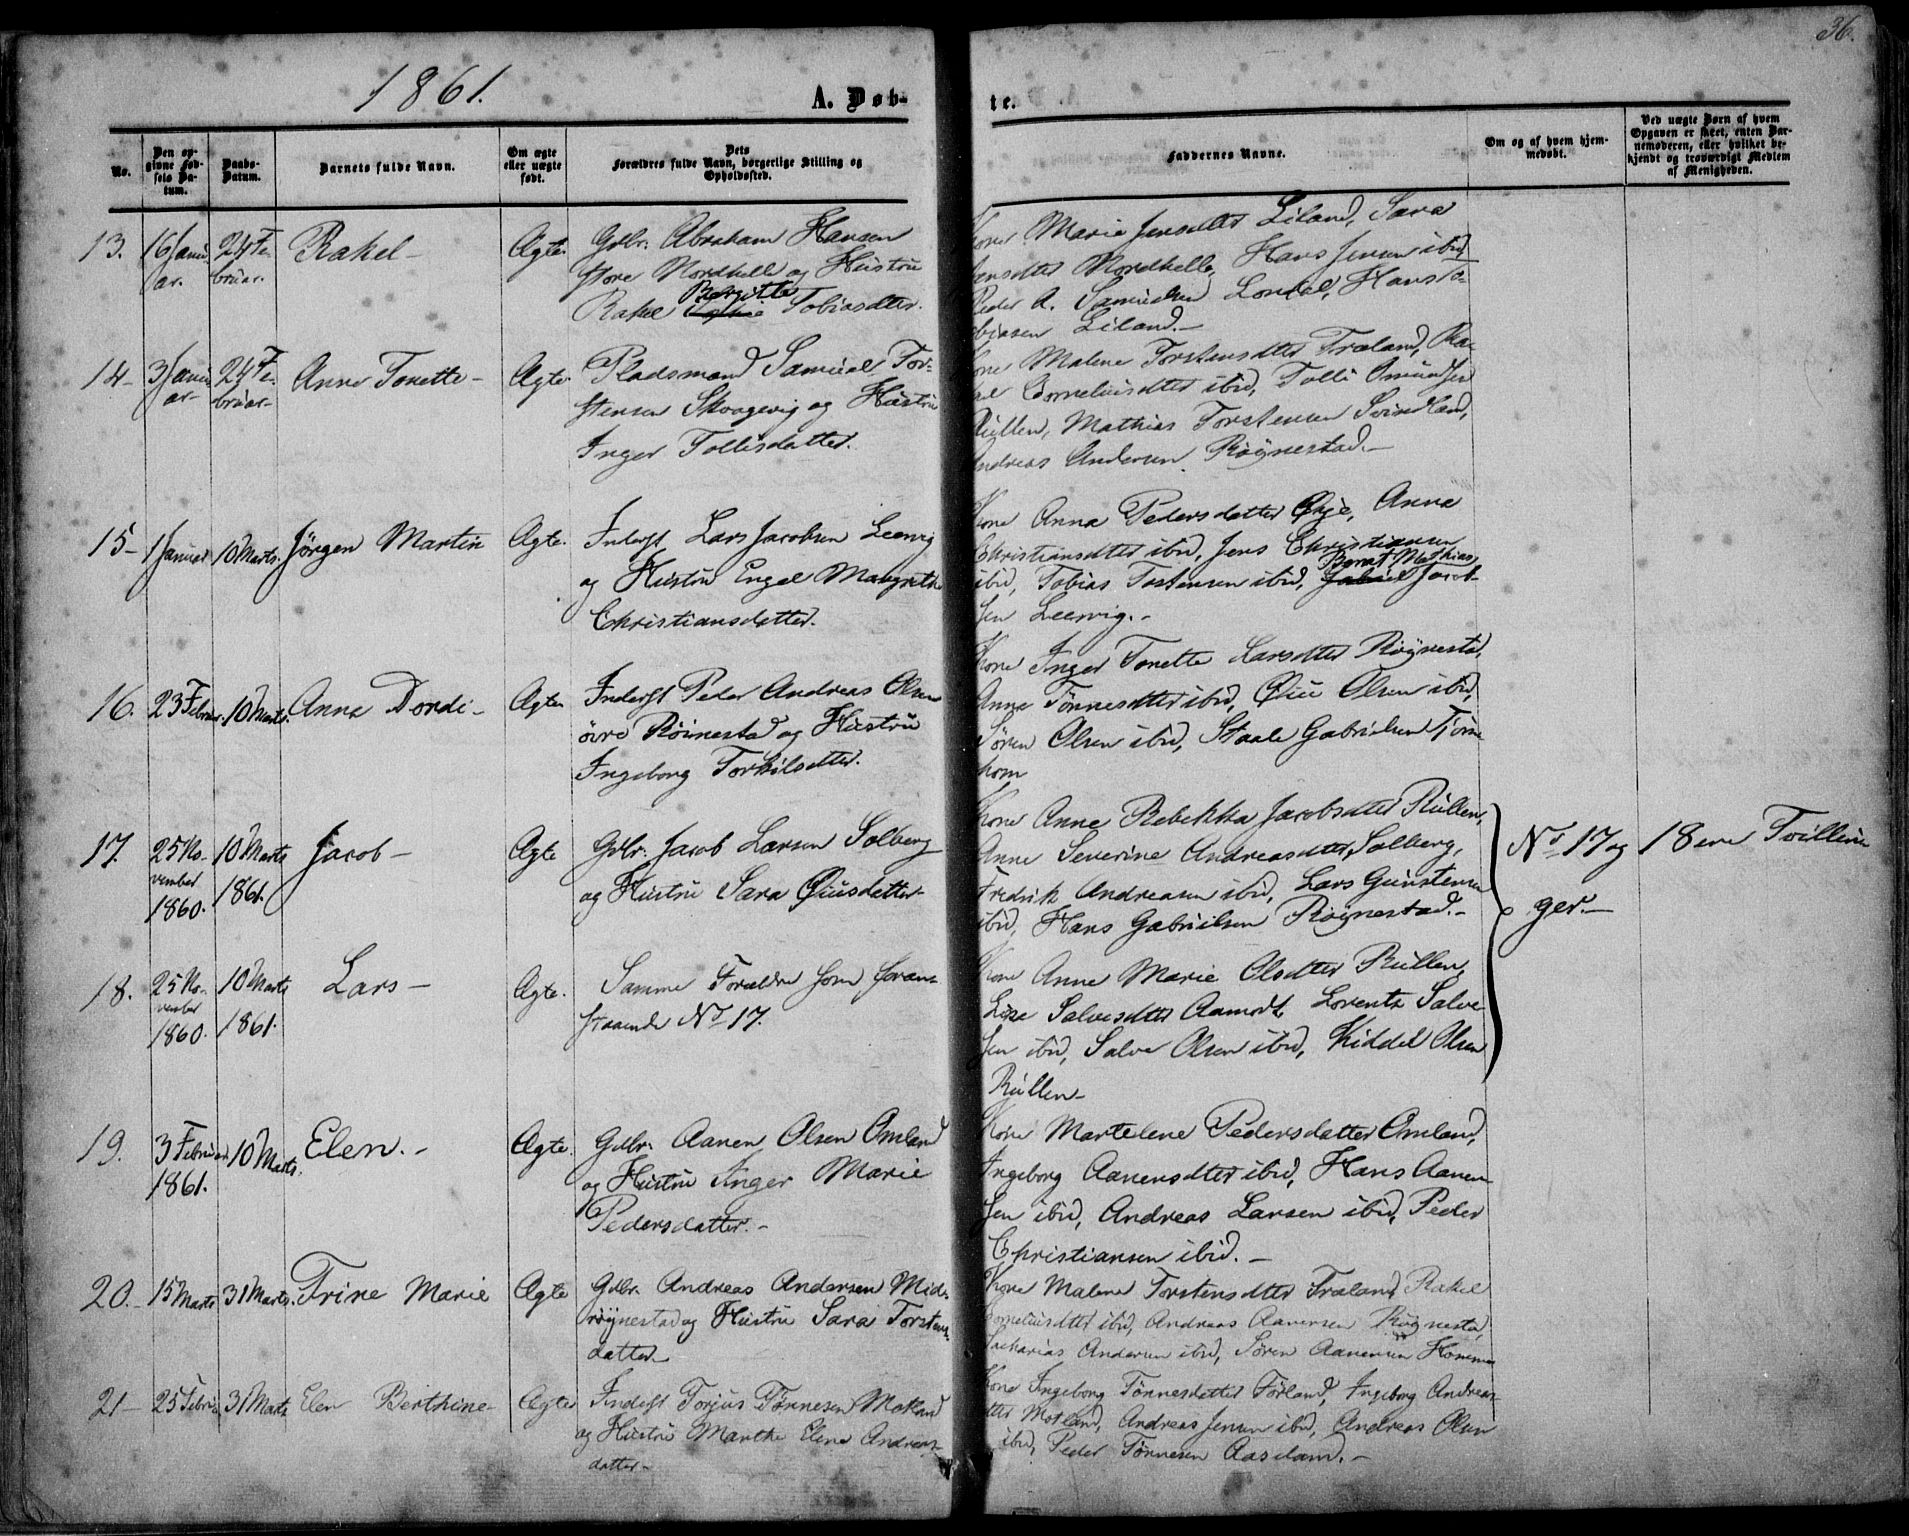 36.
1861.
A. Døb-
te.
No.
Den op-
givne Fød-
sels Da-
tum.
Daabs-
Datum.
Barnets fulde Navn.
Om ægte
eller uægte
født.
Dets
Forældres fulde Navn, borgerlige Stilling og
Opholdssted.
Faddernes Navne.
Om og af hvem hjem-
medøbt.
Ved uægte Børn af hvem
Opgaven er skeet, enten Bar-
nemoderen, eller hvilket be-
kjendt og troværdigt Medlem
af Menigheden.
13.
16 Janu
ar.
24 Fe-
bruar.
Rakel -
Ægte
Gdbr. Abraham Hansen
store Nordhelle og Hustru
Bergitte
Rakel Tobiasdtter.
Kone Marie Jensdtter Liland, Sara
Jensdtter Nordhelle, Hans Jensen ibid
Peder A. Samuelsen Londal, Hans To-
biasen Liland. -
14 -
3 Janu
ar -
24 Fe-
bruar -
Anne Tonette -
Ægte
Pladsmand Samuel Tor-
stensen Skoogevig og Hustru
Inger Tollisdatter.
Kone Malene Torstensdtter Træland, Ra-
kel Corneliusdtter ibid, Tolli Omundsen
Rullen, Mathias Torstensen Svindland,
Andreas Andersen Røynestad. -
15 -
1 Januar
10 Marts.
Jörgen Martin
Ægte.
Inderst Lars Jacobsen Leervig
og Hustru Engel Margrethe
Christiansdatter.
Kone Anna Pedersdatter Øye, Anna
Christiansdtter ibid, Jens Christiansen
Berent Mathias
ibid, Tobias Tostensen ibid, Gabriel Jacob-
sen Leervig. -
16.
23 Februar.
10 Marts.
Anna Dordi -
Ægte
Inderst Peder Andreas Olsen
övre Röinestad og Hustru
Ingeborg Torkilsdtter.
Kone Inger Tonette Larsdtter Röynestad,
Anne Tönnesdtter ibid, Øiu Olsen ibid,
Sören Olsen ibid, Staale Gabrielsen Tjöm
hom
17.
25 No-
vember
1860.
10 Marts
1861.
Jacob -
Ægte
Gdbr. Jacob Larsen Solberg
og Hustru Sara Øiusdatter -
Kone Anne Rebekka Jacobsdtter Rullen,
Anne Severine Andreasdtter Solberg,
Fredrik Andreasen ibid, Lars Gunstensen
ibid, Hans Gabrielsen Röynestad. -
No 17 og 18 ere Tvillin
ger. -
18.
25 No-
vember
1860.
10 Marts
1861.
Lars -
Ægte.
Samme Forældre som foran-
staaende No 17.
Kone Anne Marie Olsdtter Rullen,
Lise Salvesdtter Aamodt, Lorents Salve-
sen ibid, Salve Olsen ibid, Kiddel Olsen
Rullen -
19.
3 Februar.
1861.
10 Marts.
Elen. -
Ægte.
Gdbr. Aanen Olsen Omland
og Hustru Inger Marie
Pedersdatter. -
Kone Martelene Pedersdatter Omland,
Ingeborg Aanensdtter ibid, Hans Aanen-
sen ibid, Andreas Larsen ibid, Peder
Christiansen ibid. -
20. -
15 Marts
31 Marts.
Trine Marie
Ægte
Gdbr. Andreas Andersen Mid-
röynestad og Hustru Sara Torstens-
datter -
Kone Malene Torstensdtter Træland, Rakel
Corneliusdtter ibid, Andreas Aanensen Röynestad,
Sacharias Andersen ibid, Sören Aanensen Homme
21 -
25 Februar
31 Marts
Elen Berthine -
Ægte
Inderst Torjus Tönnesen Motland
og Hustru Marthe Elene Andreas-
datter -
Kone Ingeborg Tönnesdatter Förland, Ingeborg Andreas-
dtter Motland, Andreas Jensen ibid, Andreas Olsen
ibid, Peder Tönnesen Aasedam. -